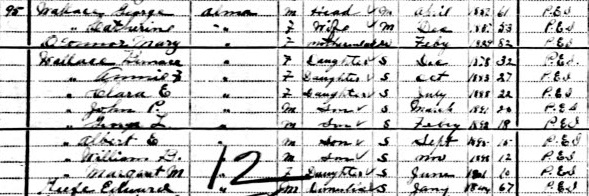 95 Wallace George Alma M Head M April 61 P.E.I
" Catherine " F Wife M Dec 53 P.E.I
O'Connor Mary " F motherinlaw Feby 82 P.E.I
Wallace " F Daughter S Dec 1878 32 P.E.I.
" Annie F " F Daughter S Oct 1883 27 P.E.I
" Clara E " F Daughter S July 1888 22 P.E.I
" John P. " M Son S March 20 P.E.I
" L. " M Son S Feby 18 P.E.I
" Albert E " M Son S Sept 15 P.E.I
" William B. " M Son S Nov 1898 12 P.E.I
" Margaret M " F Daughter S June 10 P.E.I
Keefe Edward " M S Jany 67 P.E.I
12